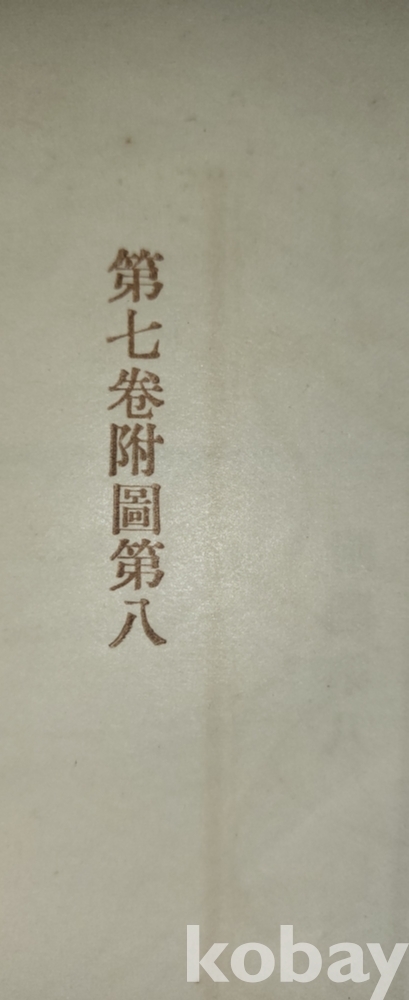 第七卷附圖第八
kobay